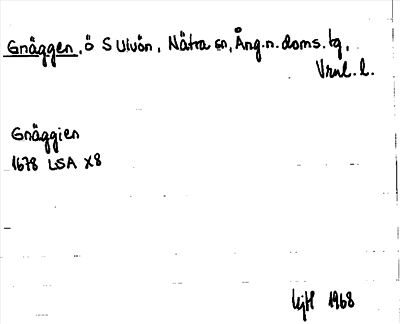 Gnäggen, ö S Ulvön, Nätra sn, Ång.n.doms.bg,
Vrnl. l.
Gnäggien
1678 LSA X8
1968